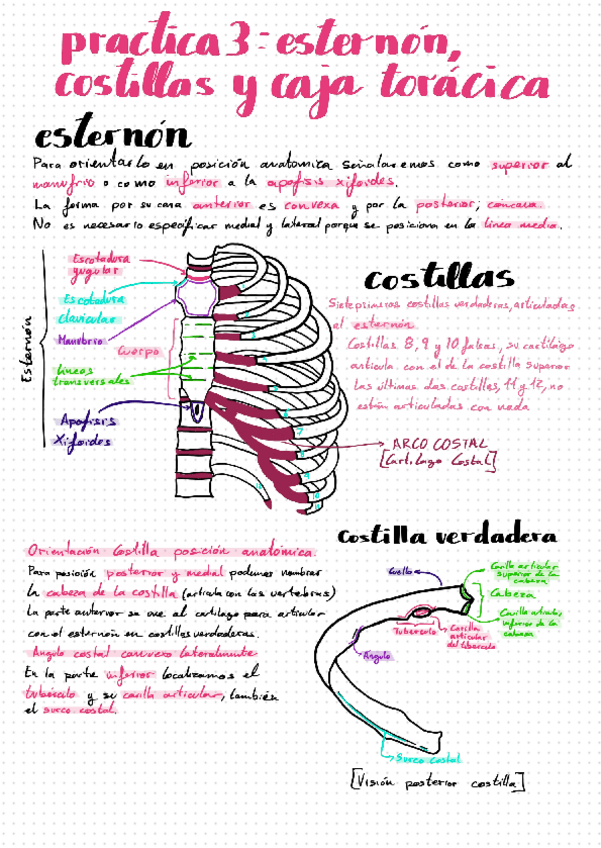 practica 3: esternón,
costillas y caja torácica
esternón
Para orientarlo en posición anatomica señalaremos como superior al
manubrio o como inferior a la apofisis xifoides.
La forma por su cara anterior es convexa y por la posterior, cóncava.
No es necesario especificar medial y lateral porque se posiciona en la linea media.
Escotadura
yugular
Escotadura
clavicular
Manubrio
Cuerpo
Lineas
transversales
Apofisis
Xifoides
Esternón
costillas
Siete primeras costillas verdaderas, articuladas
al esternón.
Costillas 8, 9 y 10 falsas, su cartilago
articula con el de la costilla superior
Las últimas dos costillas, 11 y 12, no
están articuladas con nada
ARCO COSTAL
[Cartilago Costal]
Orientación Costilla posición anatómica.
Para posición posterior y medial podemos nombrar
la cabeza de la costilla (articula con las vertebras)
La parte anterior se une al cartilago para articular
con el esternón en costillas verdaderas.
Angulo costal convexo lateralmente
En la parte inferior localizamos el
tubérculo y su carilla articular, también
el surco costal.
Costilla verdadera
Cuello
Carilla articular
superior de la
cabeza
Cabeza
Carilla articular
inferior de la
cabeza
Tuberculo
Carilla
articular
del tubérculo
Angulo
Surco costal
[Visión posterior costilla]